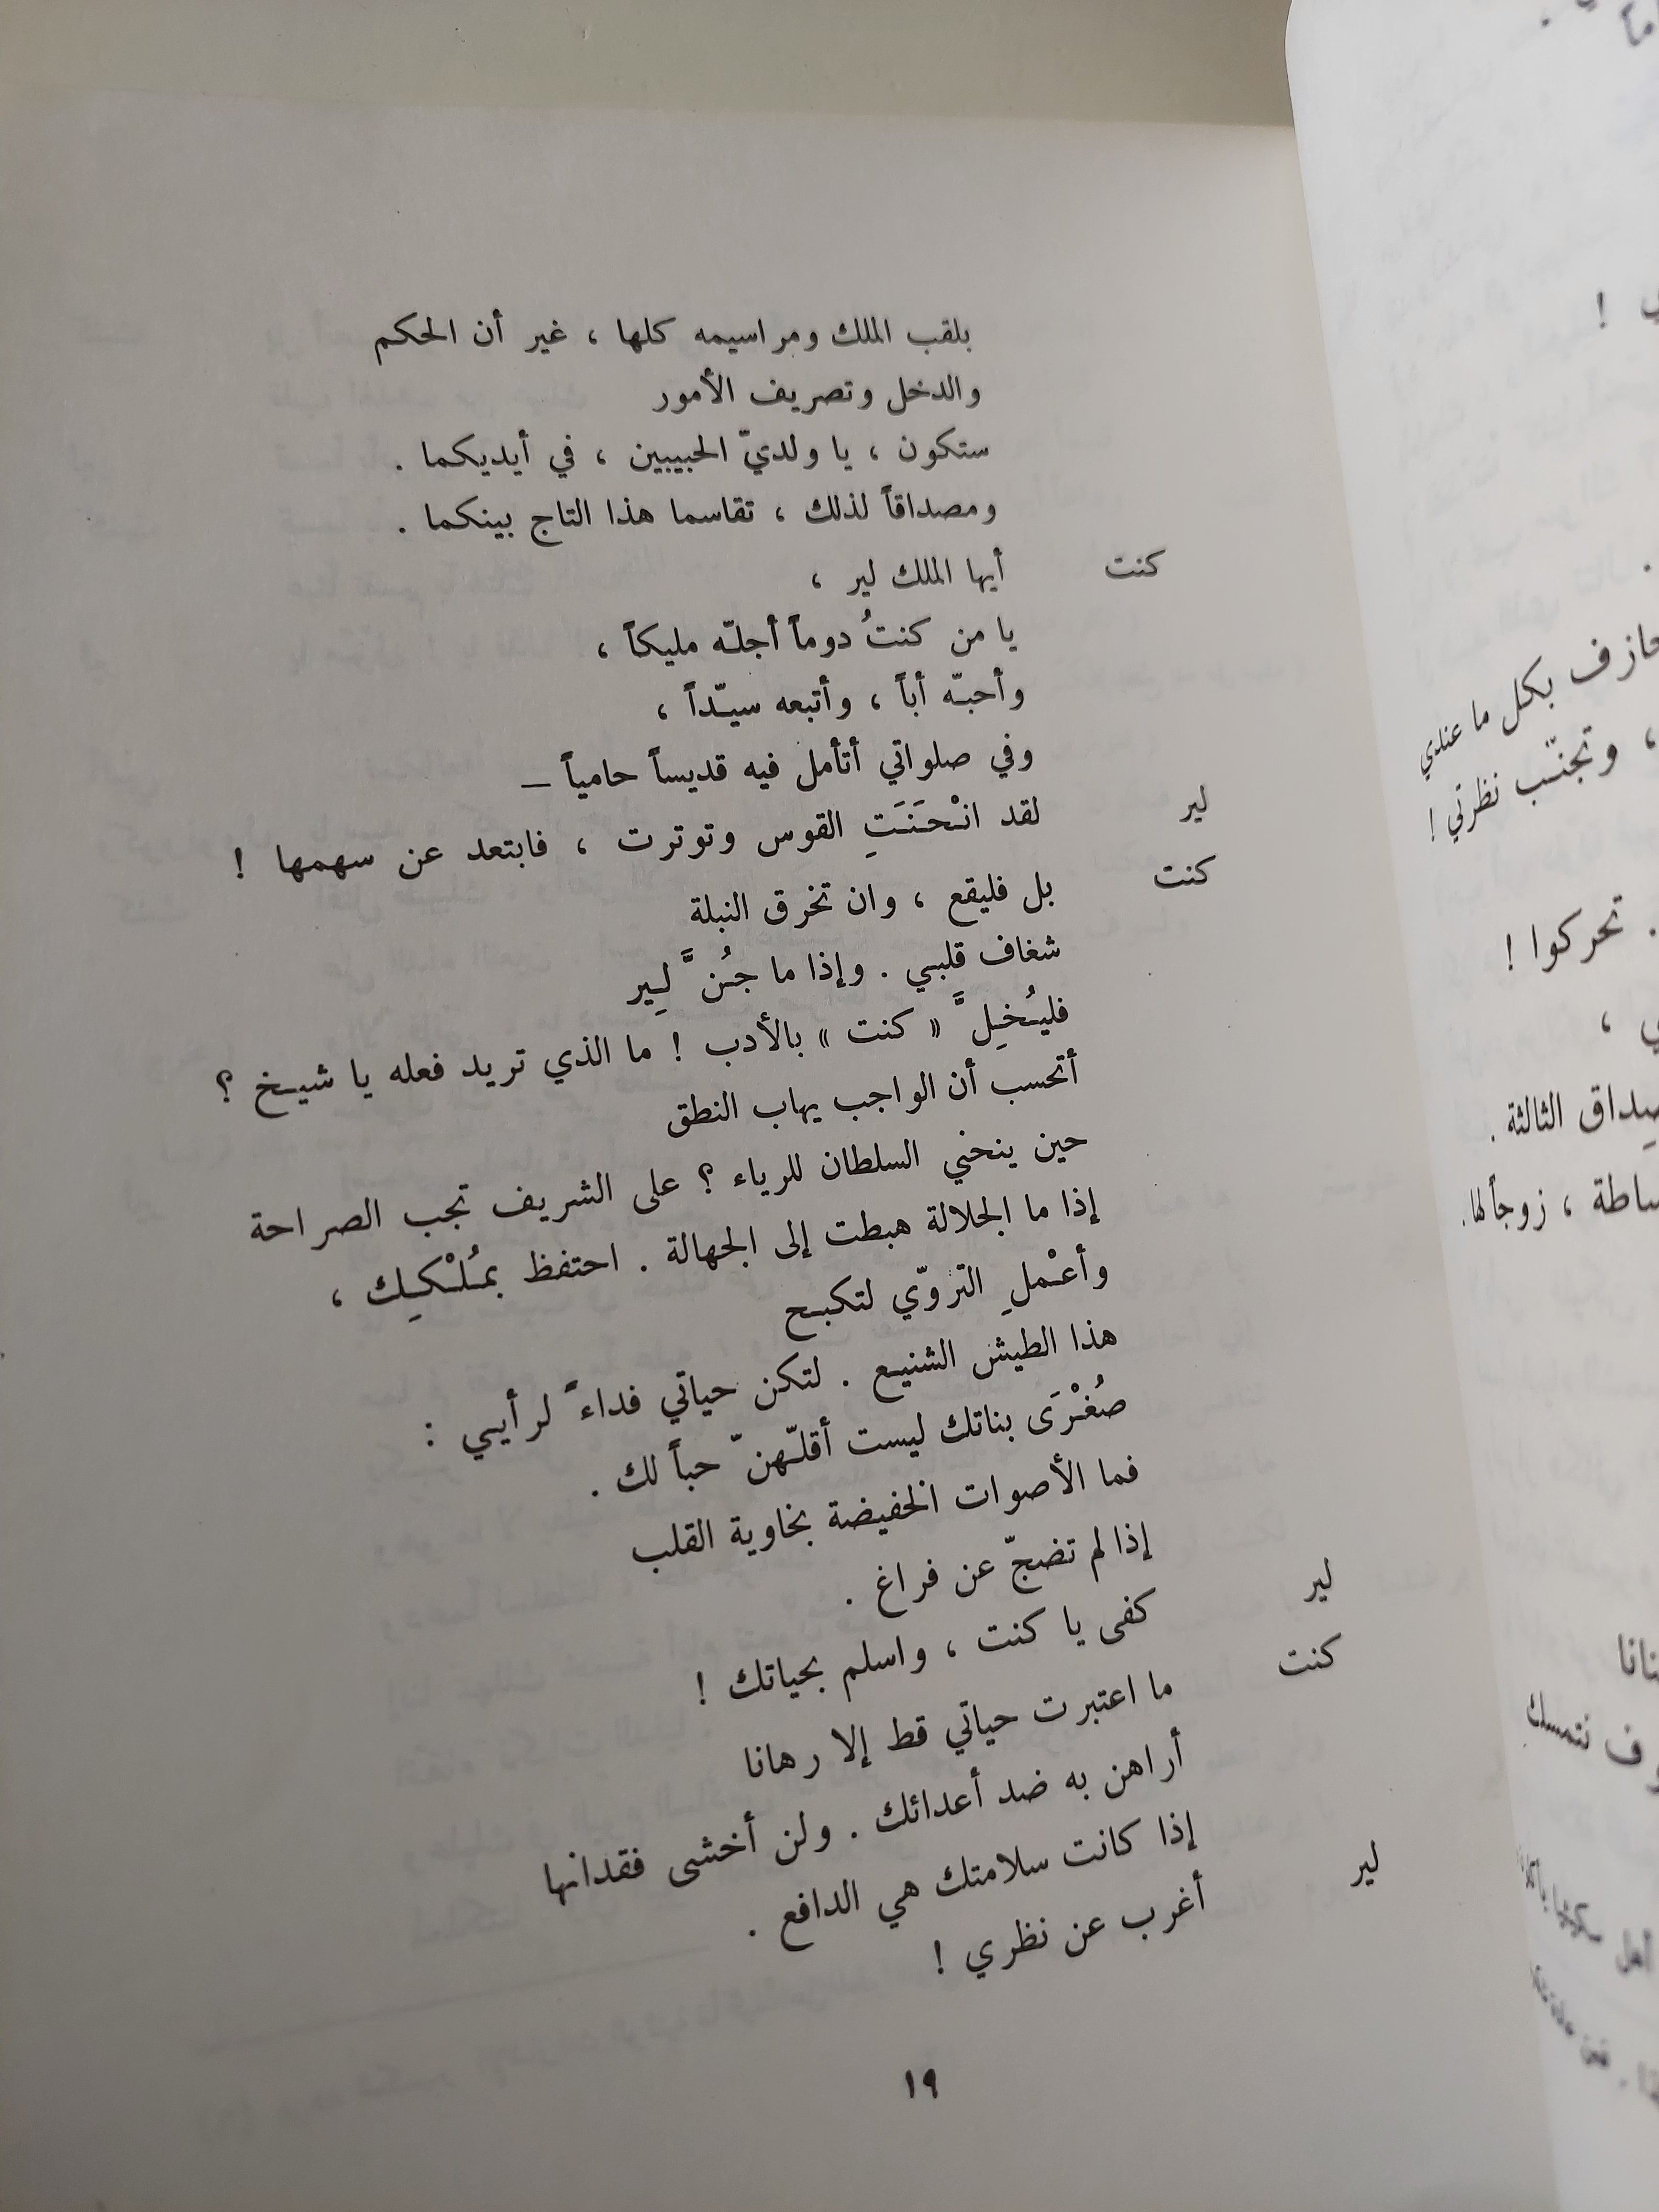 بلقب الملك ومراسيمه كلها ، غير أن الحكم
والدخل وتصريف الأمور
ستكون ، يا ولديّ الحبيبين ، في أيديكما .
ومصداقاً لذلك ، تقاسما هذا التاج بينكما .
كنت أيها الملك لير ،
يا من كنتُ دوماً أجلّه مليكاً ،
وأحبّه أباً ، وأتبعه سيّداً ،
وفي صلواتي أتأمل فيه قديساً حامياً –
لير لقد انْحَنَتِ القوس وتوترت ، فابتعد عن سهمها !
كنت بل فليقع ، وان تخرق النبلة
شغاف قلبي . وإذا ما جُنَّ لِير
فليُخِلَّ « كنت » بالأدب ! ما الذي تريد فعله يا شيخ ؟
أتحسب أن الواجب يهاب النطق
حين ينحني السلطان للرياء ؟ على الشريف تجب الصراحة
إذا ما الجلالة هبطت إلى الجهالة . احتفظ بمُلْكِك ،
وأعْملِ التروّي لتكبح
هذا الطيش الشنيع . لتكن حياتي فداءً لرأيي :
صُغْرَى بناتك ليست أقلّهنّ حباً لك .
فما الأصوات الخفيضة بخاوية القلب
إذا لم تضجّ عن فراغ .
لير كفى يا كنت ، واسلم بحياتك !
كنت ما اعتبرت حياتي قط إلا رهانا
أراهن به ضد أعدائك . ولن أخشى فقدانها
إذا كانت سلامتك هي الدافع .
لير أغرب عن نظري !
١٩
بكل ما عندي
، وتجنّب نظرتي !
. تحركوا !
الثالثة .
، زوجاً لها .
نتمسك